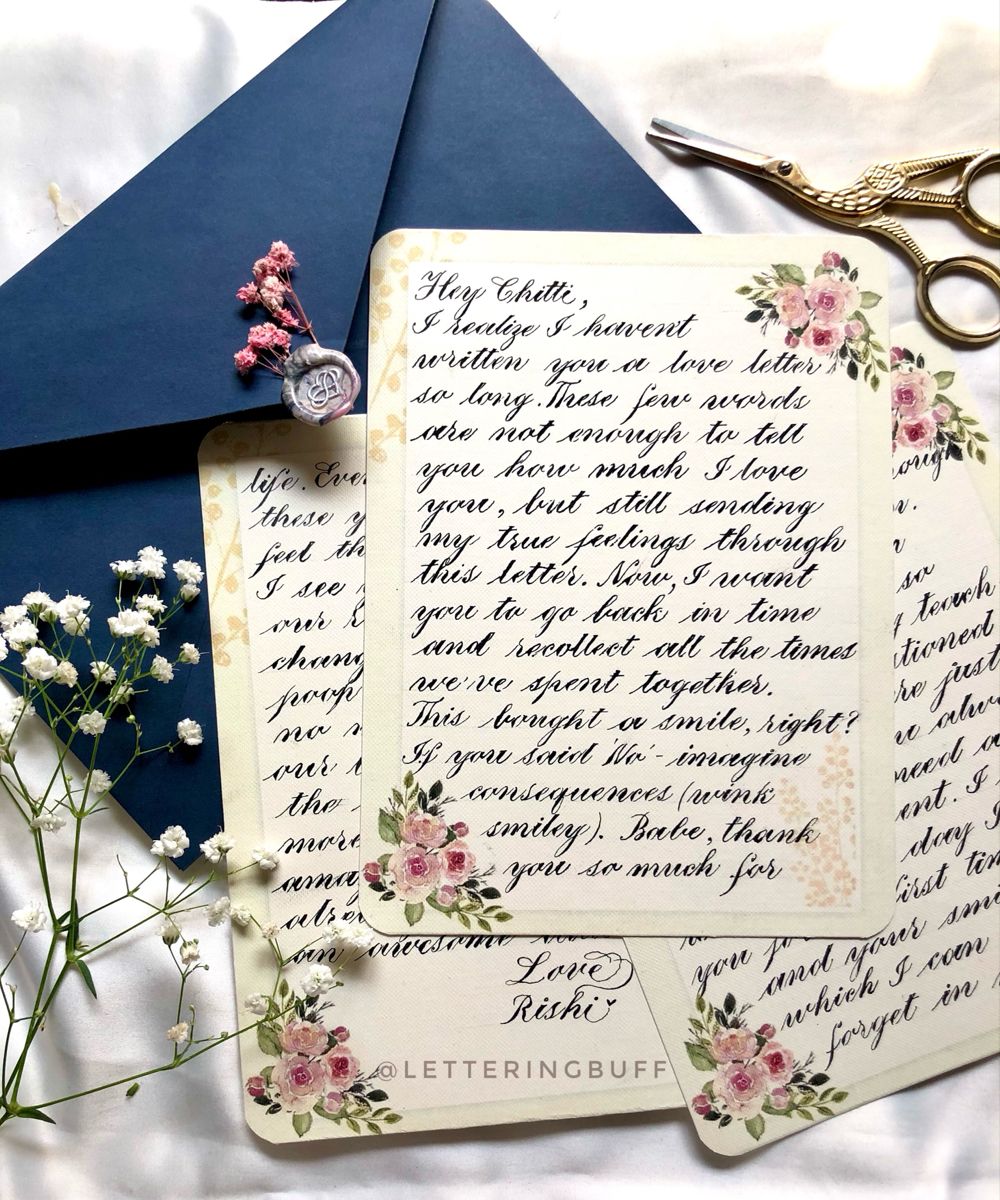 Hey Chitti,
I realize I haven't
written you a love letter
so long. These few words
are not enough to tell
you how much I love
you, but still sending
my true feelings through
this letter. Now, I want
you to go back in time
and recollect all the times
we've spent together.
This bought a smile, right?
If you said 'No' - imagine
consequences (wink
smiley). Babe, thank
you so much for
life. Ever
these y
feel th
I see
our
chang
poop
no
our
the
more
amaz
alre
an awesome
Love
Rishi
so
teach
tioned
re just
u alwa
need a
ent. I
day I
first tim
you
and your smi
which I can
forget in
@LETTERINGBUFF